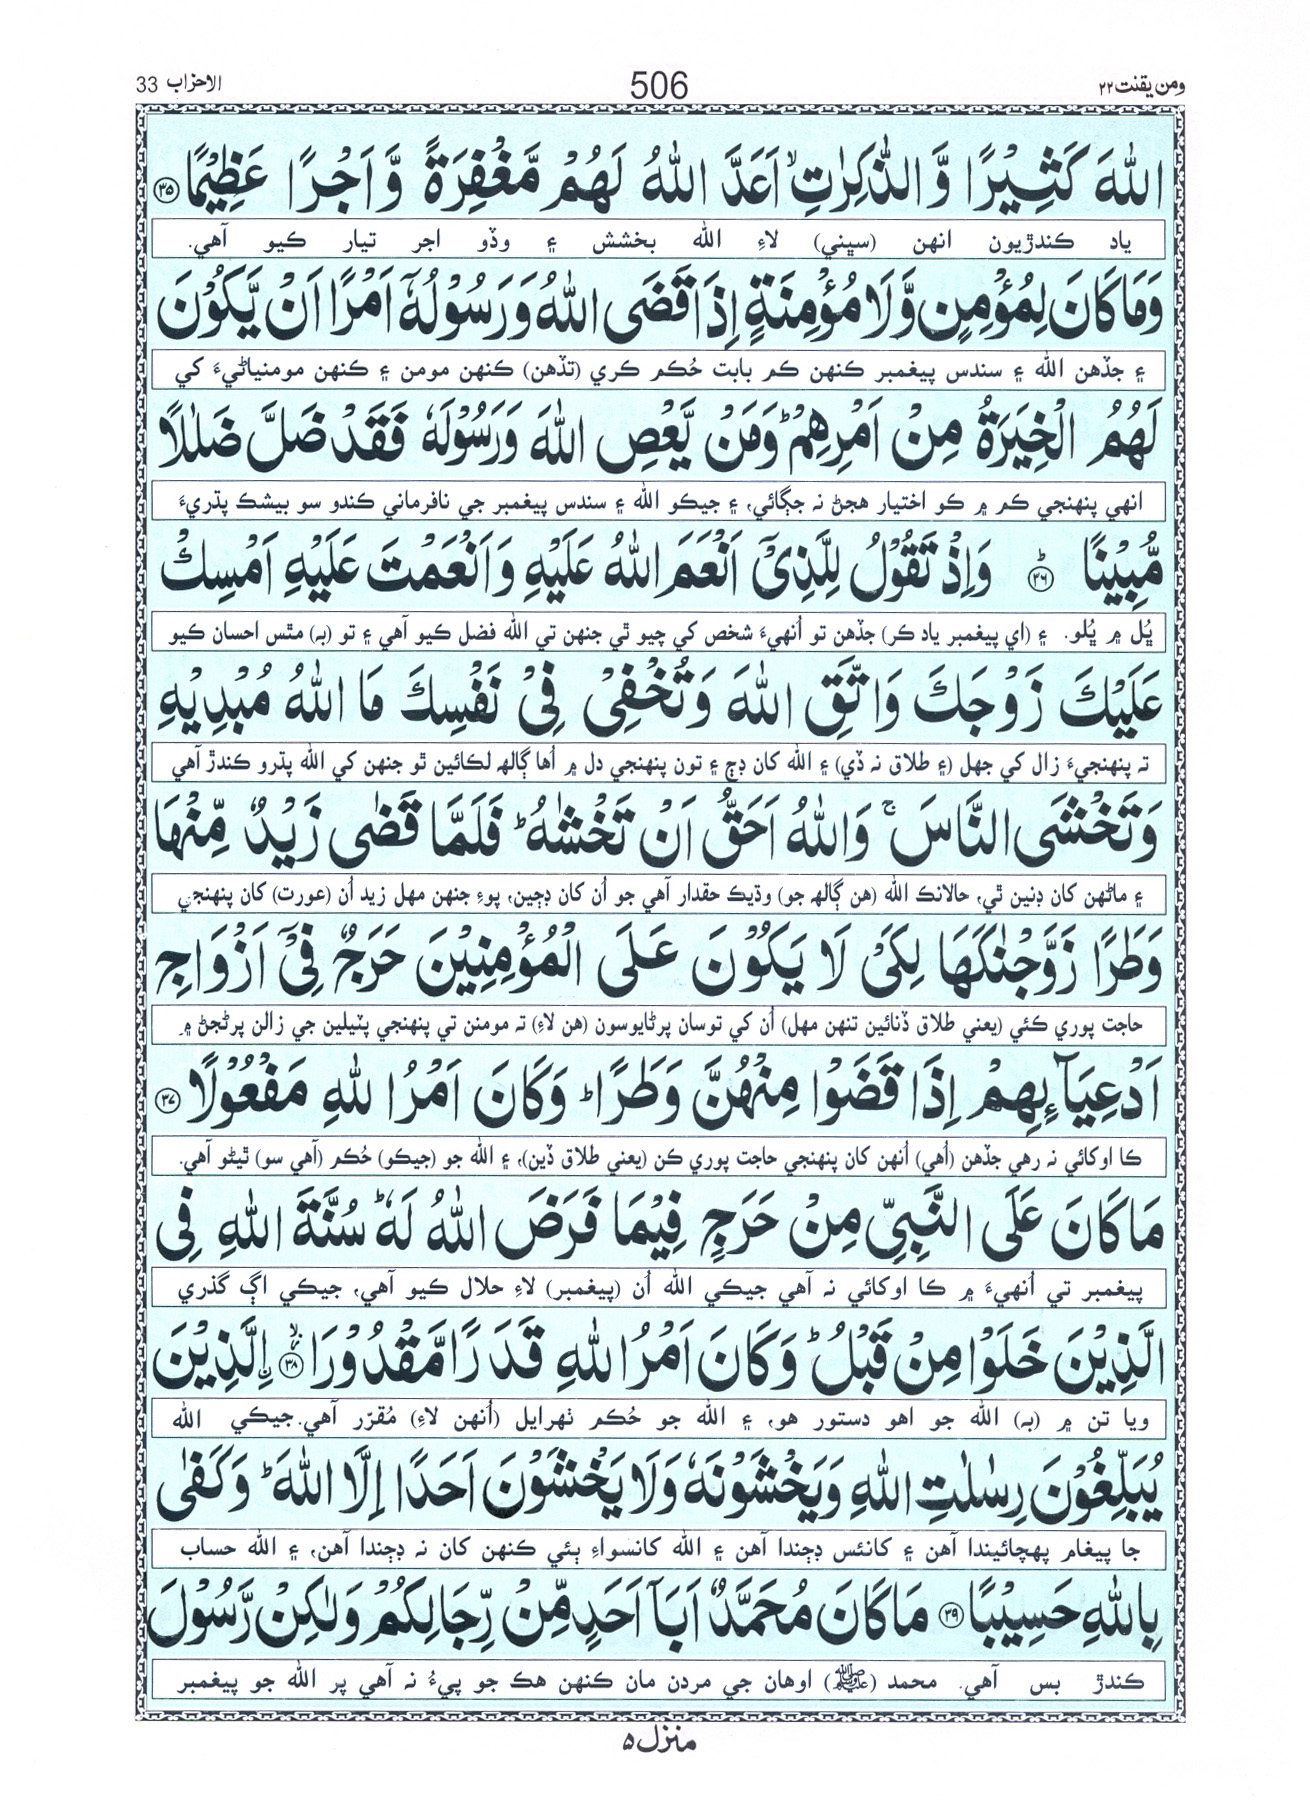 ومن يقنت ٢٢ 506 الاحزاب 33
اللّٰهَ كَثِيْرًا وَّ الذّٰكِرٰتِ ۙ اَعَدَّ اللّٰهُ لَهُمْ مَّغْفِرَةً وَّ اَجْرًا عَظِيْمًا ﴿٣٥﴾
ياد ڪندڙيون انهن (سڀني) لاءِ الله بخشش ۽ وڏو اجر تيار ڪيو آهي.
وَمَا كَانَ لِمُؤْمِنٍ وَّلَا مُؤْمِنَةٍ اِذَا قَضَى اللّٰهُ وَرَسُوْلُهٗٓ اَمْرًا اَنْ يَّكُوْنَ
۽ جڏهن الله ۽ سندس پيغمبر ڪنهن ڪم بابت حُڪم ڪري (تڏهن) ڪنهن مومن ۽ ڪنهن مومنياڻيءَ کي
لَهُمُ الْخِيَرَةُ مِنْ اَمْرِهِمْ ؕ وَمَنْ يَّعْصِ اللّٰهَ وَرَسُوْلَهٗ فَقَدْ ضَلَّ ضَلٰلًا
انهي پنهنجي ڪم ۾ ڪو اختيار هجڻ نہ جڳائي، ۽ جيڪو الله ۽ سندس پيغمبر جي نافرماني ڪندو سو بيشڪ پڌريءَ
مُّبِيْنًا ﴿٣٦﴾ؕ وَاِذْ تَقُوْلُ لِلَّذِيْٓ اَنْعَمَ اللّٰهُ عَلَيْهِ وَاَنْعَمْتَ عَلَيْهِ اَمْسِكْ
ڀُل ۾ ڀُلو. ۽ (اي پيغمبر ياد ڪر) جڏهن تو اُنهيءَ شخص کي چيو ٿي جنهن تي الله فضل ڪيو آهي ۽ تو (بہ) مٿس احسان ڪيو
عَلَيْكَ زَوْجَكَ وَاتَّقِ اللّٰهَ وَتُخْفِيْ فِيْ نَفْسِكَ مَا اللّٰهُ مُبْدِيْهِ
تہ پنهنجيءَ زال کي جهل (۽ طلاق نہ ڏي) ۽ الله کان ڊڄ ۽ تون پنهنجي دل ۾ اُها ڳالھ لڪائين ٿو جنهن کي الله پڌرو ڪندڙ آهي
وَتَخْشَى النَّاسَ ۚ وَاللّٰهُ اَحَقُّ اَنْ تَخْشٰىهُ ؕ فَلَمَّا قَضٰى زَيْدٌ مِّنْهَا
۽ ماڻهن کان ڊنين ٿي، حالانڪ الله (هن ڳالھ جو) وڌيڪ حقدار آهي جو اُن کان ڊڄين، پوءِ جنهن مهل زيد اُن (عورت) کان پنهنجي
وَطَرًا زَوَّجْنٰكَهَا لِكَيْ لَا يَكُوْنَ عَلَى الْمُؤْمِنِيْنَ حَرَجٌ فِيْٓ اَزْوَاجِ
حاجت پوري ڪئي (يعني طلاق ڏنائين تنهن مهل) اُن کي توسان پرڻايوسون (هن لاءِ) تہ مومنن تي پنهنجي پٽيلين جي زالن پرڻجڻ ۾
اَدْعِيَآئِهِمْ اِذَا قَضَوْا مِنْهُنَّ وَطَرًا ؕ وَكَانَ اَمْرُ اللّٰهِ مَفْعُوْلًا ﴿٣٧﴾
ڪا اوکائي نہ رهي جڏهن (اُهي) اُنهن کان پنهنجي حاجت پوري ڪن (يعني طلاق ڏين)، ۽ الله جو (جيڪو) حُڪم (آهي سو) ٿيڻو آهي.
مَا كَانَ عَلَى النَّبِيِّ مِنْ حَرَجٍ فِيْمَا فَرَضَ اللّٰهُ لَهٗ ؕ سُنَّةَ اللّٰهِ فِى
پيغمبر تي اُنهيءَ ۾ ڪا اوکائي نہ آهي جيڪي الله اُن (پيغمبر) لاءِ حلال ڪيو آهي، جيڪي اڳ گذري
الَّذِيْنَ خَلَوْا مِنْ قَبْلُ ؕ وَكَانَ اَمْرُ اللّٰهِ قَدَرًا مَّقْدُوْرَا ﴿٣٨﴾ اۨلَّذِيْنَ
ويا تن ۾ (بہ) الله جو اهو دستور هو، ۽ الله جو حُڪم ٺهرايل (اُنهن لاءِ) مُقرّر آهي. جيڪي الله
يُبَلِّغُوْنَ رِسٰلٰتِ اللّٰهِ وَيَخْشَوْنَهٗ وَلَا يَخْشَوْنَ اَحَدًا اِلَّا اللّٰهَ ؕ وَكَفٰى
جا پيغام پهچائيندا آهن ۽ کانئس ڊڄندا آهن ۽ الله کانسواءِ ٻئي ڪنهن کان نہ ڊڄندا آهن، ۽ الله حساب
بِاللّٰهِ حَسِيْبًا ﴿٣٩﴾ مَا كَانَ مُحَمَّدٌ اَبَآ اَحَدٍ مِّنْ رِّجَالِكُمْ وَلٰكِنْ رَّسُوْلَ
ڪندڙ بس آهي. محمد (ﷺ) اوهان جي مردن مان ڪنهن هڪ جو پيءُ نہ آهي پر الله جو پيغمبر
منزل ٥